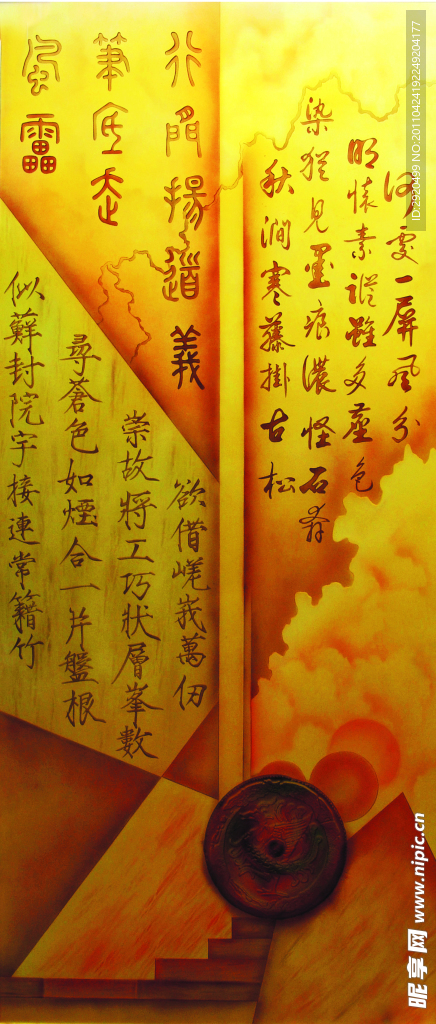 行門揚道義
筆底走
風雷
何處一屏風分
明懷素蹤雖多塵色
染猶見墨痕濃怪石奔
秋澗寒藤掛古松
欲借嵯峨萬仞
崇故將工巧狀層峯數
尋蒼色如煙合一片盤根
似蘚封院宇接連常籍竹
ID:2920499 NO:20110424192249204177
昵享网 www.nipic.cn